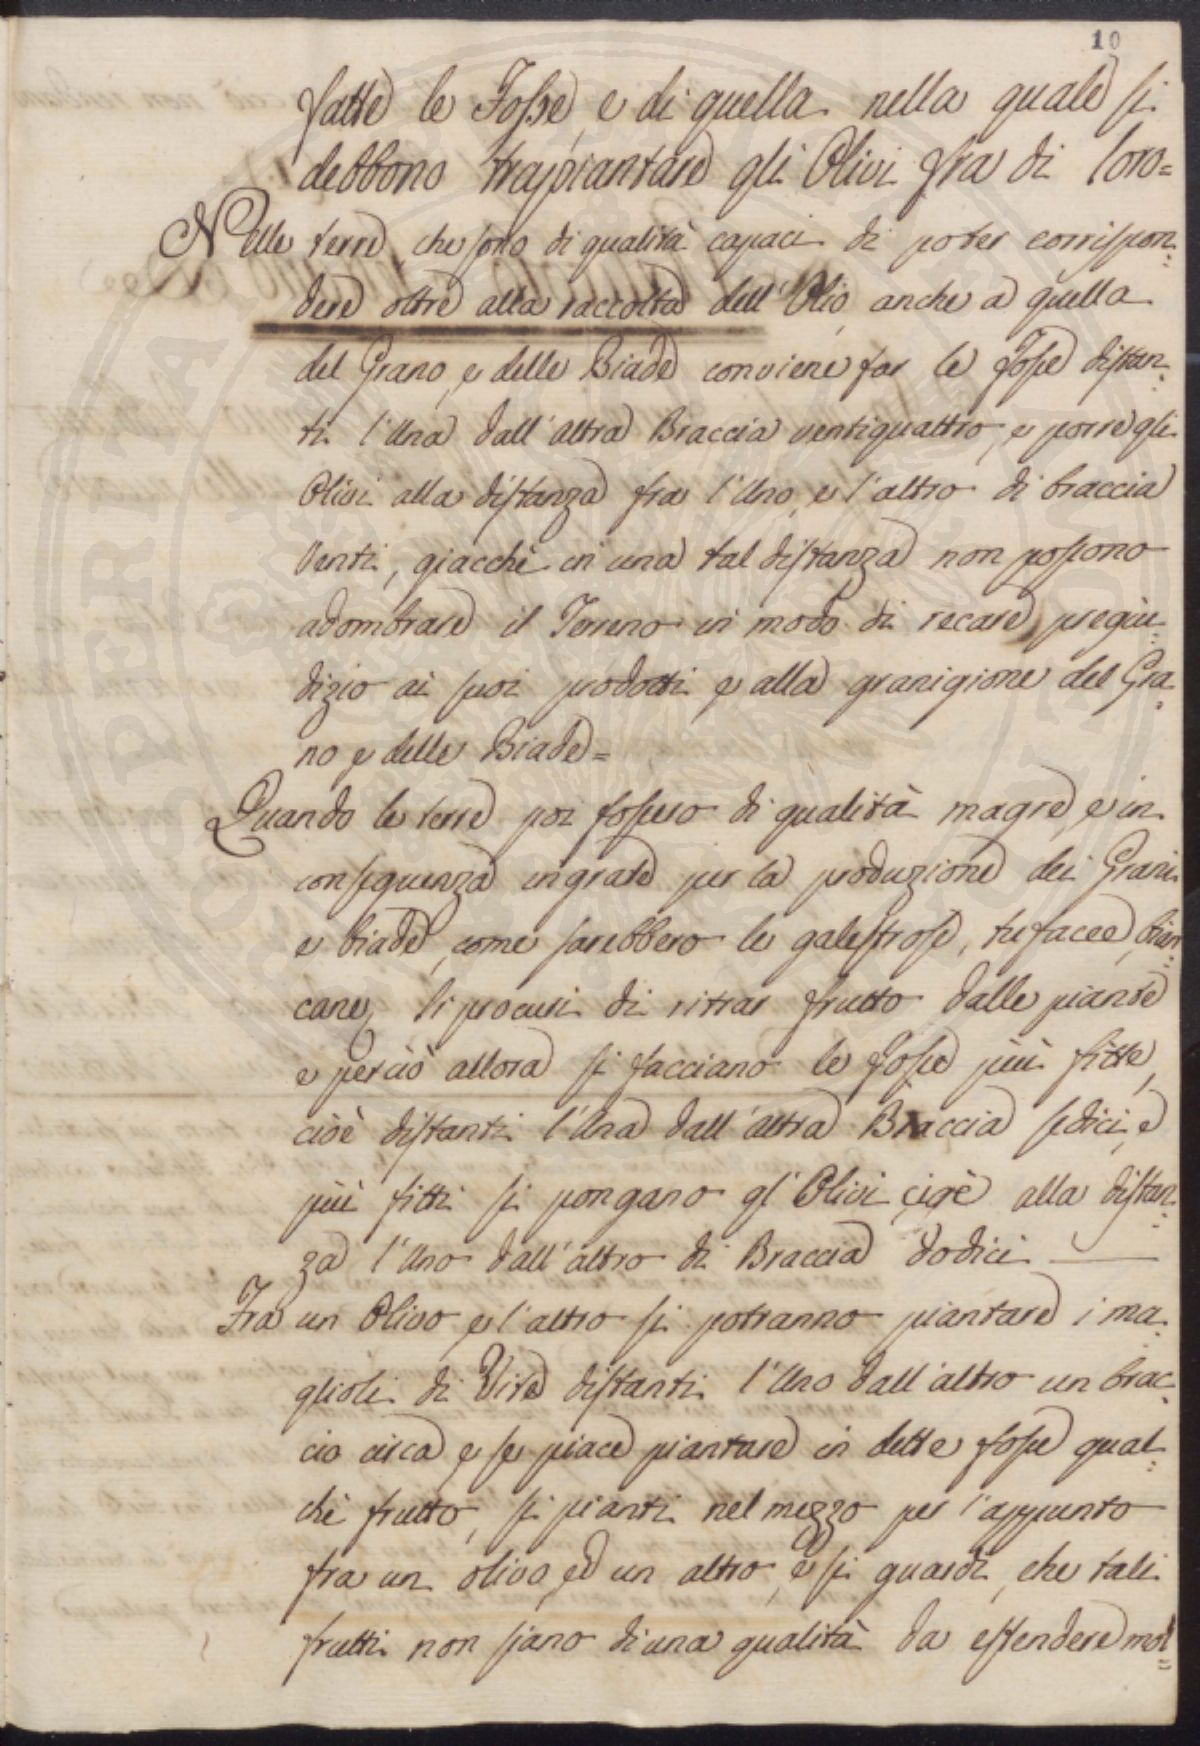 10
fatte le Fosse, e di quella nella quale si
debbono trapiantare gli Olivi fra di loro=
Nelle terre che sono di qualità capaci di poter corrispon=
dere oltre alla raccolta dell'Olio, anche a quella
del Grano, e delle Biade conviene far le fosse distan=
ti l'Una dall'altra Braccia ventiquattro, e porre gli
Olivi alla distanza fra l'Uno, e l'altro di braccia
Venti, giacchè in una tal distanza non possono
adombrare il Terreno in modo di recare pregiu=
dizio ai suoi prodotti e alla granigione del Gra=
no e delle Biade=
Quando le terre poi fossero di qualità magre, e in
conseguenza ingrate per la produzione dei Grani
e biade, come sarebbero le galestrose, tufacee, bian=
cane, si procuri di ritrar frutto dalle piante
e perciò allora si facciano le fosse più fitte,
cioè distanti l'Una dall'altra Braccia sedici, e
più fitti si pongano gl'Olivi cioè alla distan=
za l'Uno dall'altro di Braccia dodici
Fra un Olivo e l'altro si potranno piantare i ma=
glioli di Vite distanti l'Uno dall'altro un brac=
cio circa e se piace piantare in dette fosse qual=
che frutto, si pianti nel mezzo per l'appunto
fra un olivo, ed un altro, e si guardi, che tali
frutti non siano di una qualità da estendere mol=